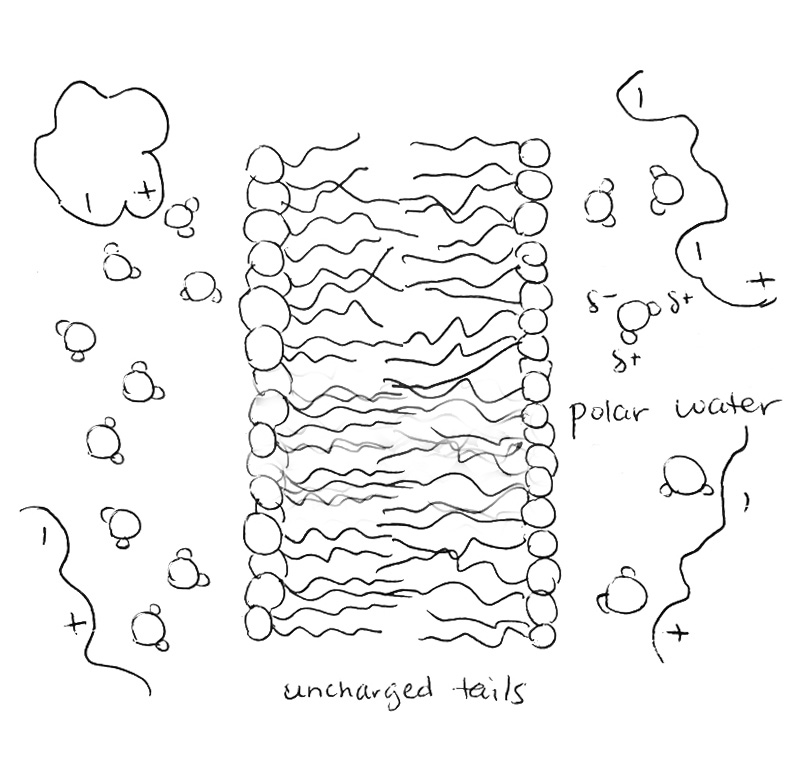 δ- δ+
δ+
polar water
uncharged tails
- +
- - +
- +
- +